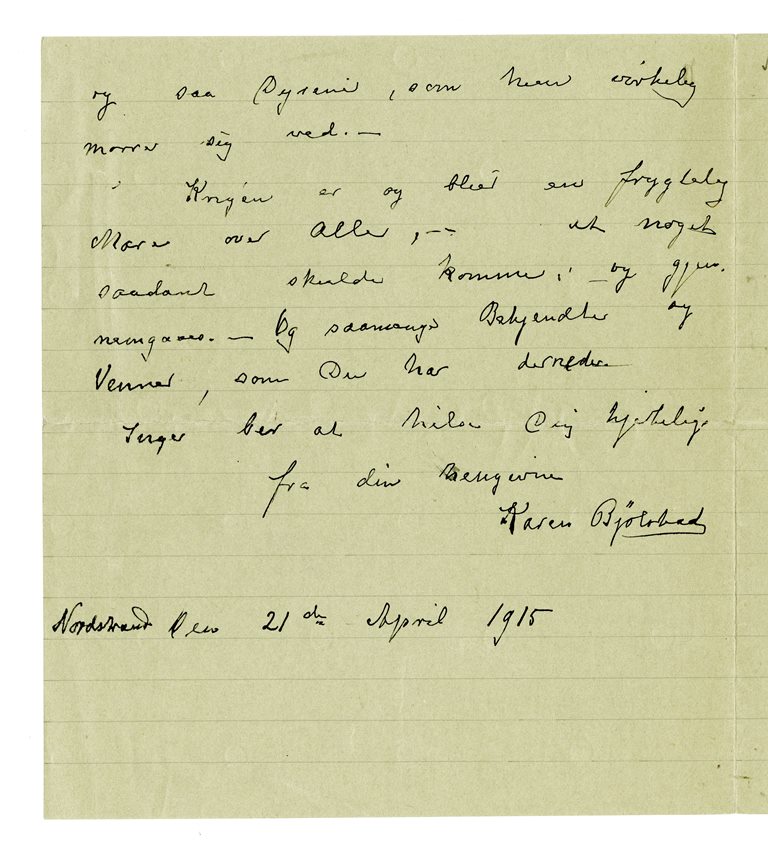 og saa Dyrene, som han virkelig
morrer sig ved. —
Krigen er og blier en frygtelig
Mare over Alle, —— at noget
saadant skulde komme, — og gjen-
nemgaaes. — Og saamange Bekjendte og
Venner, som Du har dernede.
Inger ber at hilse Dig hjertelig
fra din hengivne
Karen Bjölstad
Nordstrand Den 21de April 1915